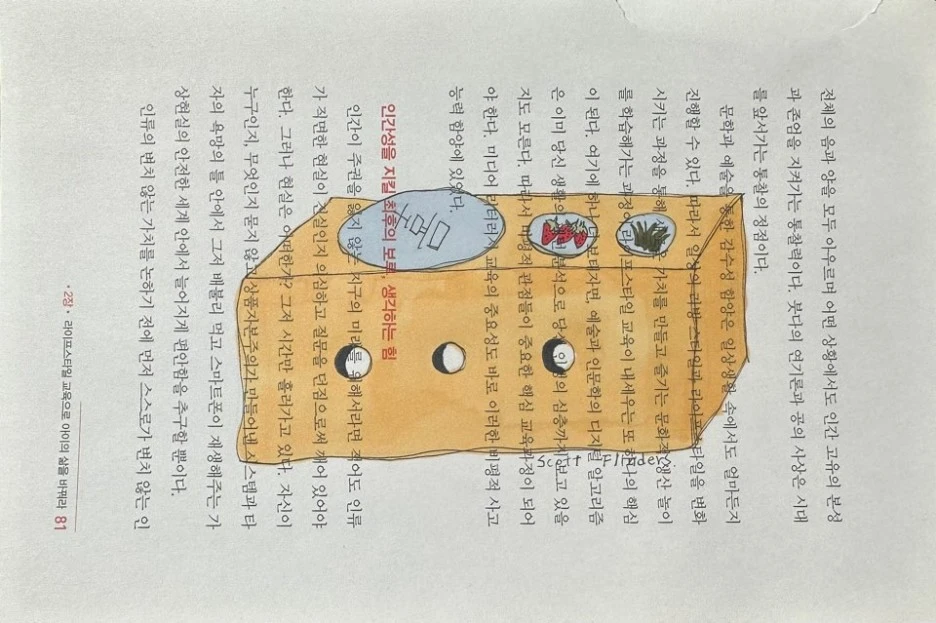 전체의 음과 양을 모두 아우르며 어떤 상황에서도 인간 고유의 본성
과 존엄을 지켜가는 통찰력이다. 붓다의 연기론과 공의 사상은 시대
를 앞서가는 통찰의 정점이다.
문학과 예술을 통한 감수성 함양은 일상생활 속에서도 얼마든지
진행할 수 있다. 따라서 일상의 리빙 스타일과 라이프스타일을 변화
시키는 과정을 통해 가치를 만들고 즐기는 문화적 생산 놀이
를 학습해가는 과정이 라이프스타일 교육이 내세우는 또 하나의 핵심
이 된다. 여기에 하나 더 보태자면, 예술과 인문학의 디지털 알고리즘
은 이미 당신 생활의 분석으로 당신 인생의 심층까지 보고 있을
지도 모른다. 따라서 비평적 관점들이 중요한 핵심 교육과정이 되어
야 한다. 미디어 리터러시 교육의 중요성도 바로 이러한 비평적 사고
능력 함양에 있었다.
인간성을 지킬 최후의 보루, 생각하는 힘
인간이 주권을 잃지 않는 지구의 미래를 위해서라면 적어도 인류
가 직면한 현실이 진실인지 의심하고 질문을 던짐으로써 깨어 있어야
한다. 그러나 현실은 어떠한가? 그저 시간만 흘러가고 있다. 자신이
누구인지, 무엇인지 묻지 않고 상품자본주의가 만들어낸 시스템과 타
자의 욕망의 틀 안에서 그저 배불리 먹고 스마트폰이 재생해주는 가
상현실의 안전한 세계 안에서 늘어지게 편안함을 추구할 뿐이다.
인류의 변치 않는 가치를 논하기 전에 먼저 스스로가 변치 않는 인
• 2장 • 라이프스타일 교육으로 아이의 삶을 바꿔라 81
Scott Flinders.